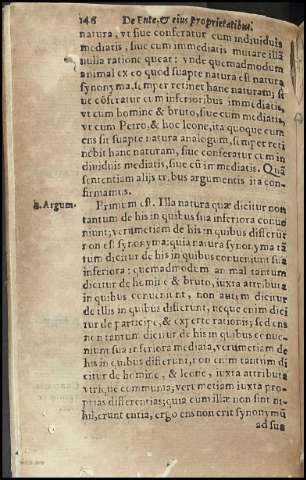 146 De Ente, & eius proprietatibus.
natura, vt siue conferatur cum indiuiduis
mediatis, siue cum immediatis mutare illã
nulla ratione queat: vnde quemadmodum
animal ex eo quod suapte natura est natura
synonyma, semper retinet hanc naturam; si
ue cõferatur cum inferioribus immediatis,
vt cum homine & bruto, siue cum mediatis,
vt cum Petro, & hoc leone, ita quoque cum
ens sit suapte natura analogum, semper reti
nebit hanc naturam, siue conferatur cum in
diuiduis mediatis, siue cũ immediatis. Quã
sententiam alijs tribus argumentis ita con-
firmamus.
Argum. Primum est. Illa natura quæ dicitur non
tantum de his in quibus sua inferiora conue
niunt; verum etiam de his in quibus differũt
non est synonyma: quia natura synonyma tã
tum dicitur de his in quibus conueniunt sua
inferiora: quemadmodum animal tantum
dicitur de homine & bruto, iuxta attributa
in quibus conueniunt, non autem dicitur
de illis in quibus differunt, neque enim dici
tur de participe, & experte rationis; sed ens
non tantum dicitur de his in quibus conue-
niunt sua inferiora mediata, verum etiam de
his in quibus differunt, non enim tantum di
citur de homine, & leone, iuxta attributa
vtrique communia; verum etiam iuxta pro-
prias differentias; quia cum illæ non sint ni-
hil, erunt entia, ergo ens non erit synonymũ
ad sua